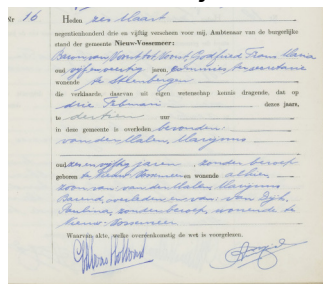 Nr 16 Heden zes Maart
negentienhonderd drie en vijftig verscheen voor mij, Ambtenaar van de burgerlijke
stand der gemeente Nieuw-Vossemeer:
Godfried Frans Maria
oud vijfenveertig jaren, gemeentesecretaris
wonende te Steenbergen
die verklaarde, daarvan uit eigen wetenschap kennis dragende, dat op
drie Februari dezes jaars,
te dertien uur
in deze gemeente is overleden bevonden:
van der Male, Marijnus
oud jaren, zonder beroep
geboren te Nieuw-Vossemeer en wonende alhier
zoon van van der Male, Marijnus
Barend, overleden en van: van Dijk,
Paulina, zonder beroep, wonende te
Nieuw-Vossemeer
Waarvan akte, welke overeenkomstig de wet is voorgelezen.